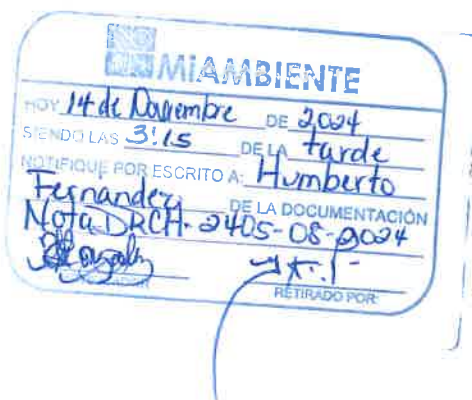 MiAMBIENTE
HOY 14 de Noviembre DE 2024
SIENDO LAS 3:15 DE LA tarde
NOTIFIQUE POR ESCRITO A: Humberto
Fernandez DE LA DOCUMENTACIÓN
Nota DRCH-2405-08-2024
RETIRADO POR: